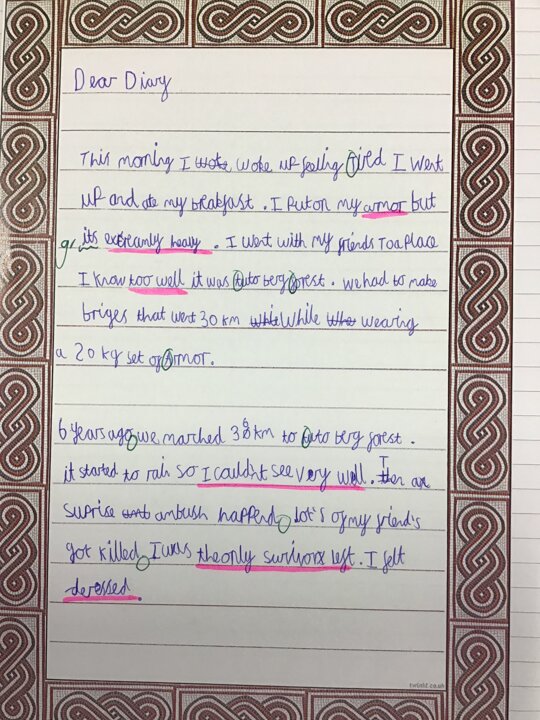 Dear Diary
This morning I woke up feeling Tired I went
up and ate my breakfast. I put on my armor but
gr its extreamly heavy. I went with my friends To a place
I know too well it was tuto berg forest. we had to make
briges that went 30 km while wearing
a 20 kg set of Armor.
6 years ago we marched 38 km to tuto berg forest.
it started to rain so I couldn't see very well. Then an
suprise ambush happend Lot's of my friend's
got killed I was the only survivor left. I felt
deressed.
twinkl.co.uk